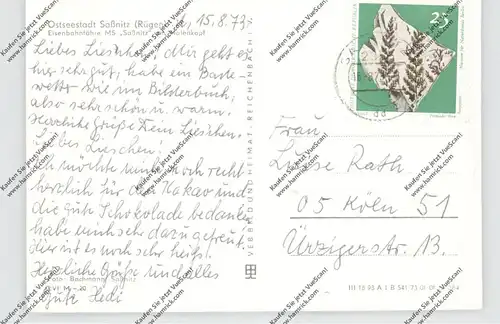 Ostseestadt Saßnitz (Rügen)
Eisenbahnfähre MS „Saßnitz" Molenkopf
15.8.73
Liebes Lieschen! Mir geht es
hier sehr gut; habe ein Bade-
wetter wie im Bilderbuch;
also sehr schön u. warm.
Herzliche Grüße Dein Lieschen.
Liebes Lieschen!
Ich möchte noch recht
herzlich für den Kakao und
die gute Schokolade bedanken
habe mich sehr dazu gefreut.
Hier ist es noch sehr heiß.
Herzliche Grüße und alles
Gute Hedi
Foto: Bachmann, Saßnitz
VERLAG BILD UND HEIMAT, REICHENBACH
Frau
Luise Rath
05 Köln 51
Ürzigerstr. 13.
III 18 95 A 1 B 541/73
Kaufen Sie jetzt VueScan!
www.hamrick.com